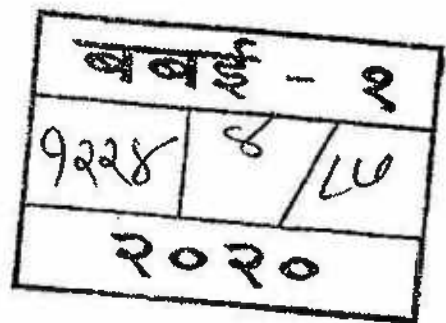 बबई - २
१२२४ ४ /
२०२०